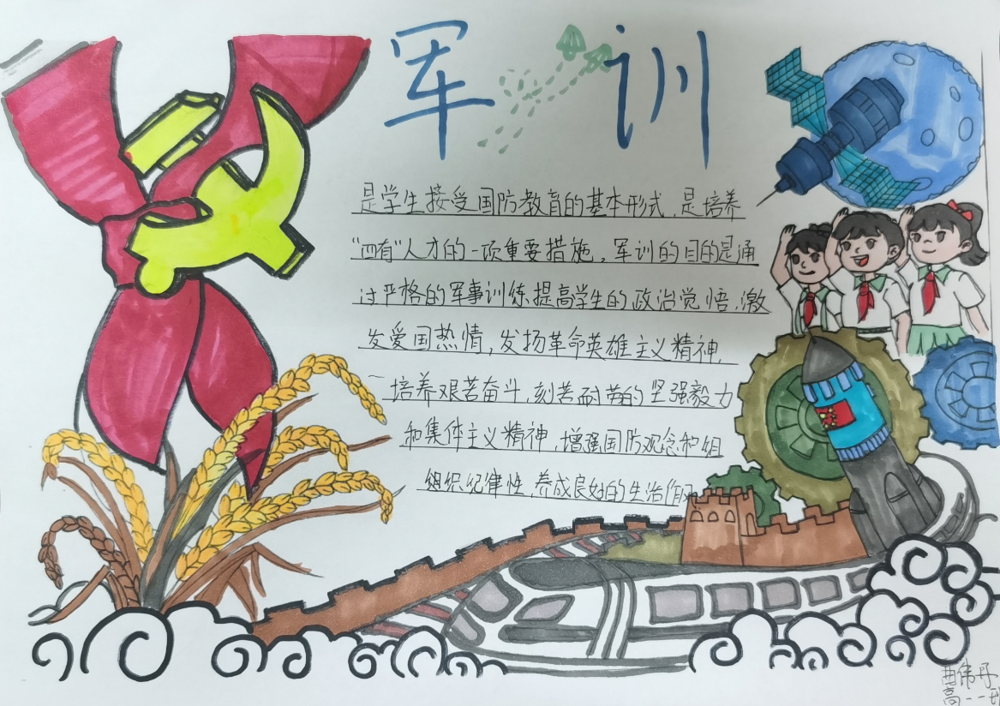 军训
是学生接受国防教育的基本形式，是培养
“四有”人才的一项重要措施，军训的目的是通
过严格的军事训练提高学生的政治觉悟，激
发爱国热情，发扬革命英雄主义精神，
培养艰苦奋斗，刻苦耐劳的坚强毅力
和集体主义精神，增强国防观念和组
组织纪律性，养成良好的生活作风
伟丹
高一一班